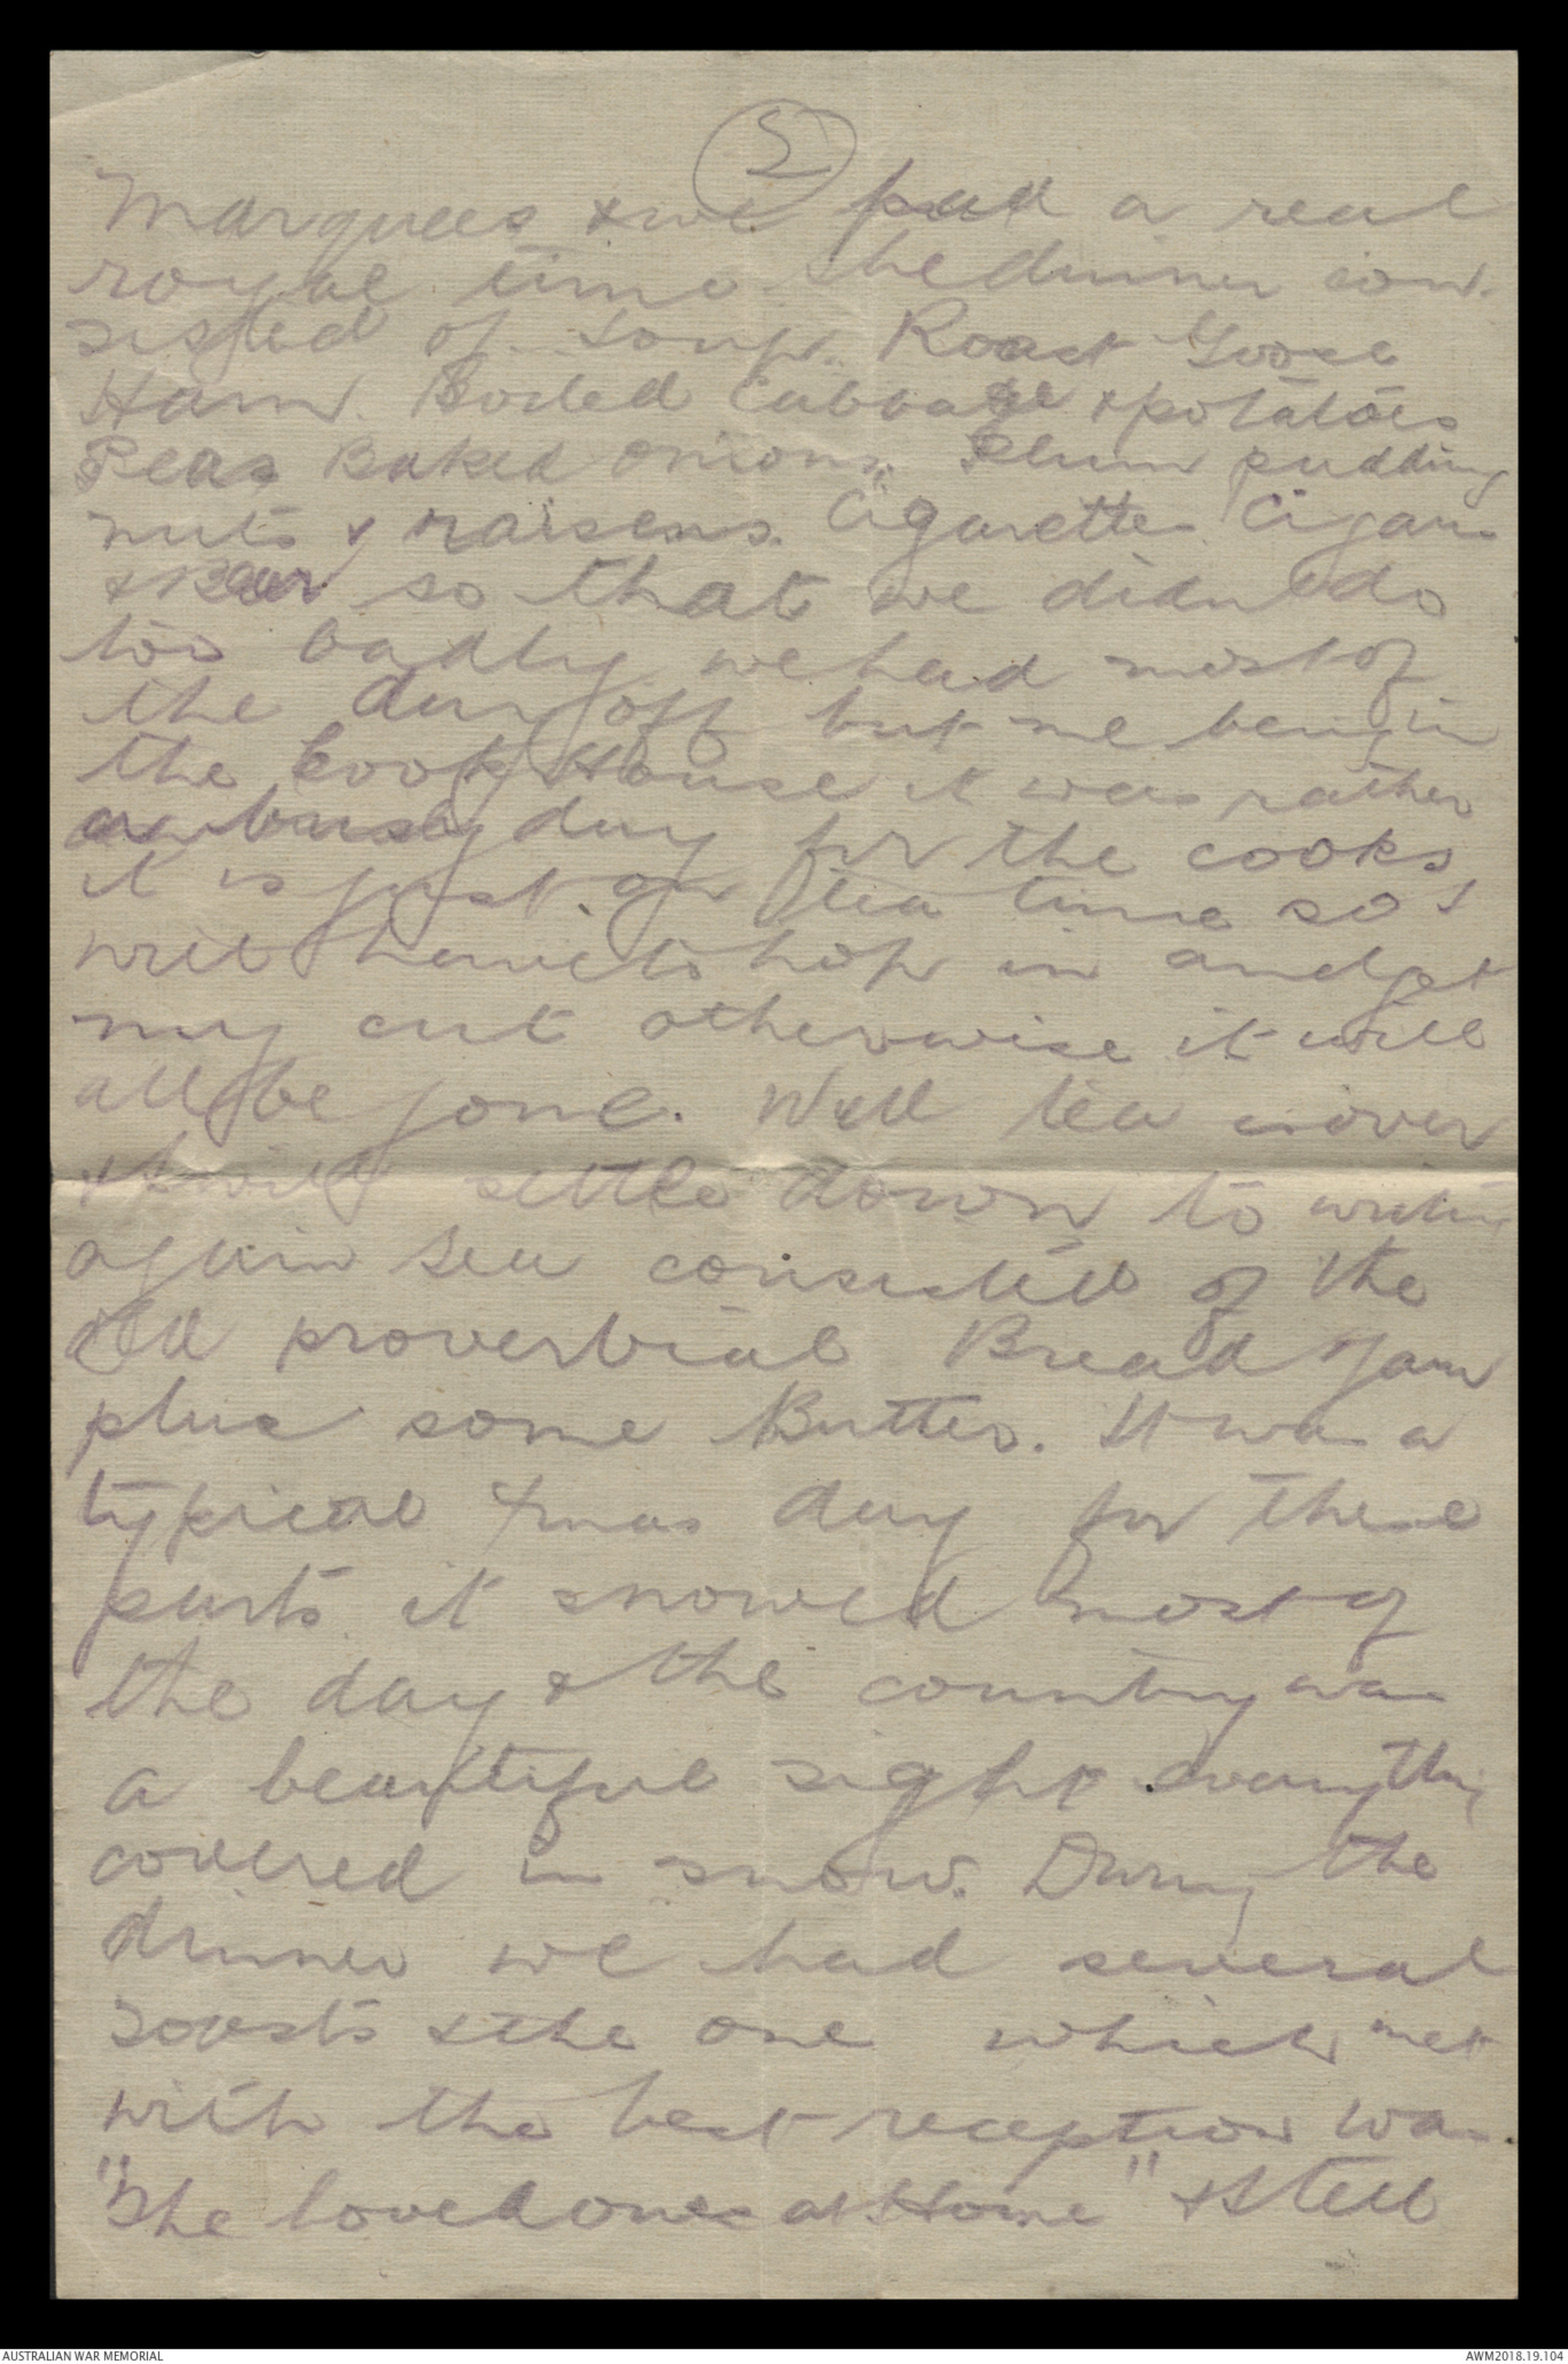 5
Marquees & we had a real
royal time. The dinner con-
sisted of Soup. Roast Goose
Ham. Boiled Cabbage & potatoes
Peas Baked Onions. Plum pudding
nuts & raisens. Cigarettes Cigars
& Beer so that we didnt do
too badly we had most of
the day off but me being in
the Cook House it was rather
a busy day for the cooks,
it is just on tea time so I
will have to hop in and get
my cut otherwise it will
all be gone. Well tea is over
& I will settle down to writing
again Tea consisted of the
old proverbial Bread Jam
plus some Butter. It was a
typical Xmas day for these
parts it snowed most of
the day & the country was
a beautiful sight everything
covered in snow. During the
dinner we had several
Toasts & the one which met
with the best reception was
"The loved ones at Home" & I tell
AUSTRALIAN WAR MEMORIAL
AWM2018.19.104